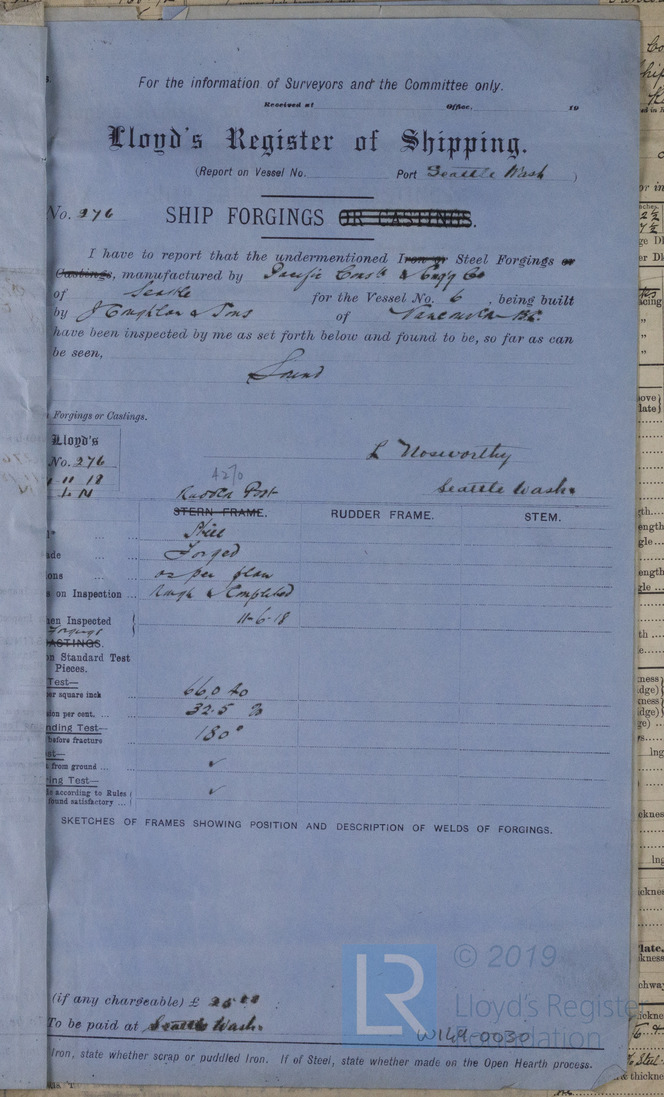 For the information of Surveyors and the Committee only.
Received at Office, 19
Lloyd's Register of Shipping.
(Report on Vessel No. Port Seattle Wash )
No. 276 SHIP FORGINGS OR CASTINGS.
I have to report that the undermentioned Iron or Steel Forgings or
Castings, manufactured by Pacific Const & Engg Co
of Seattle for the Vessel No. 6, being built
by J Coughlan & Sons of Vancouver B.C.
have been inspected by me as set forth below and found to be, so far as can
be seen,
Sound
Forgings or Castings.
Lloyd's
No. 276
L Nosworthy
4270
Seattle Wash.
Rudder Post
STERN FRAME. RUDDER FRAME. STEM.
Steel
ade Forged
ons as per plan
s on Inspection ... Rough & Completed
en Inspected 11-6-18
Forgings
CASTINGS.
n Standard Test
Pieces.
Test—
er square inch 66,0
ion per cent. ... 32.5 %
nding Test—
before fracture 180°
t—
from ground ... ✓
ing Test—
e according to Rules
found satisfactory ... ✓
SKETCHES OF FRAMES SHOWING POSITION AND DESCRIPTION OF WELDS OF FORGINGS.
(if any chargeable) £ 25.00
To be paid at Seattle Wash.
Iron, state whether scrap or puddled Iron. If of Steel, state whether made on the Open Hearth process.
LR
© 2019
Lloyd's Register
Foundation
W149-0030